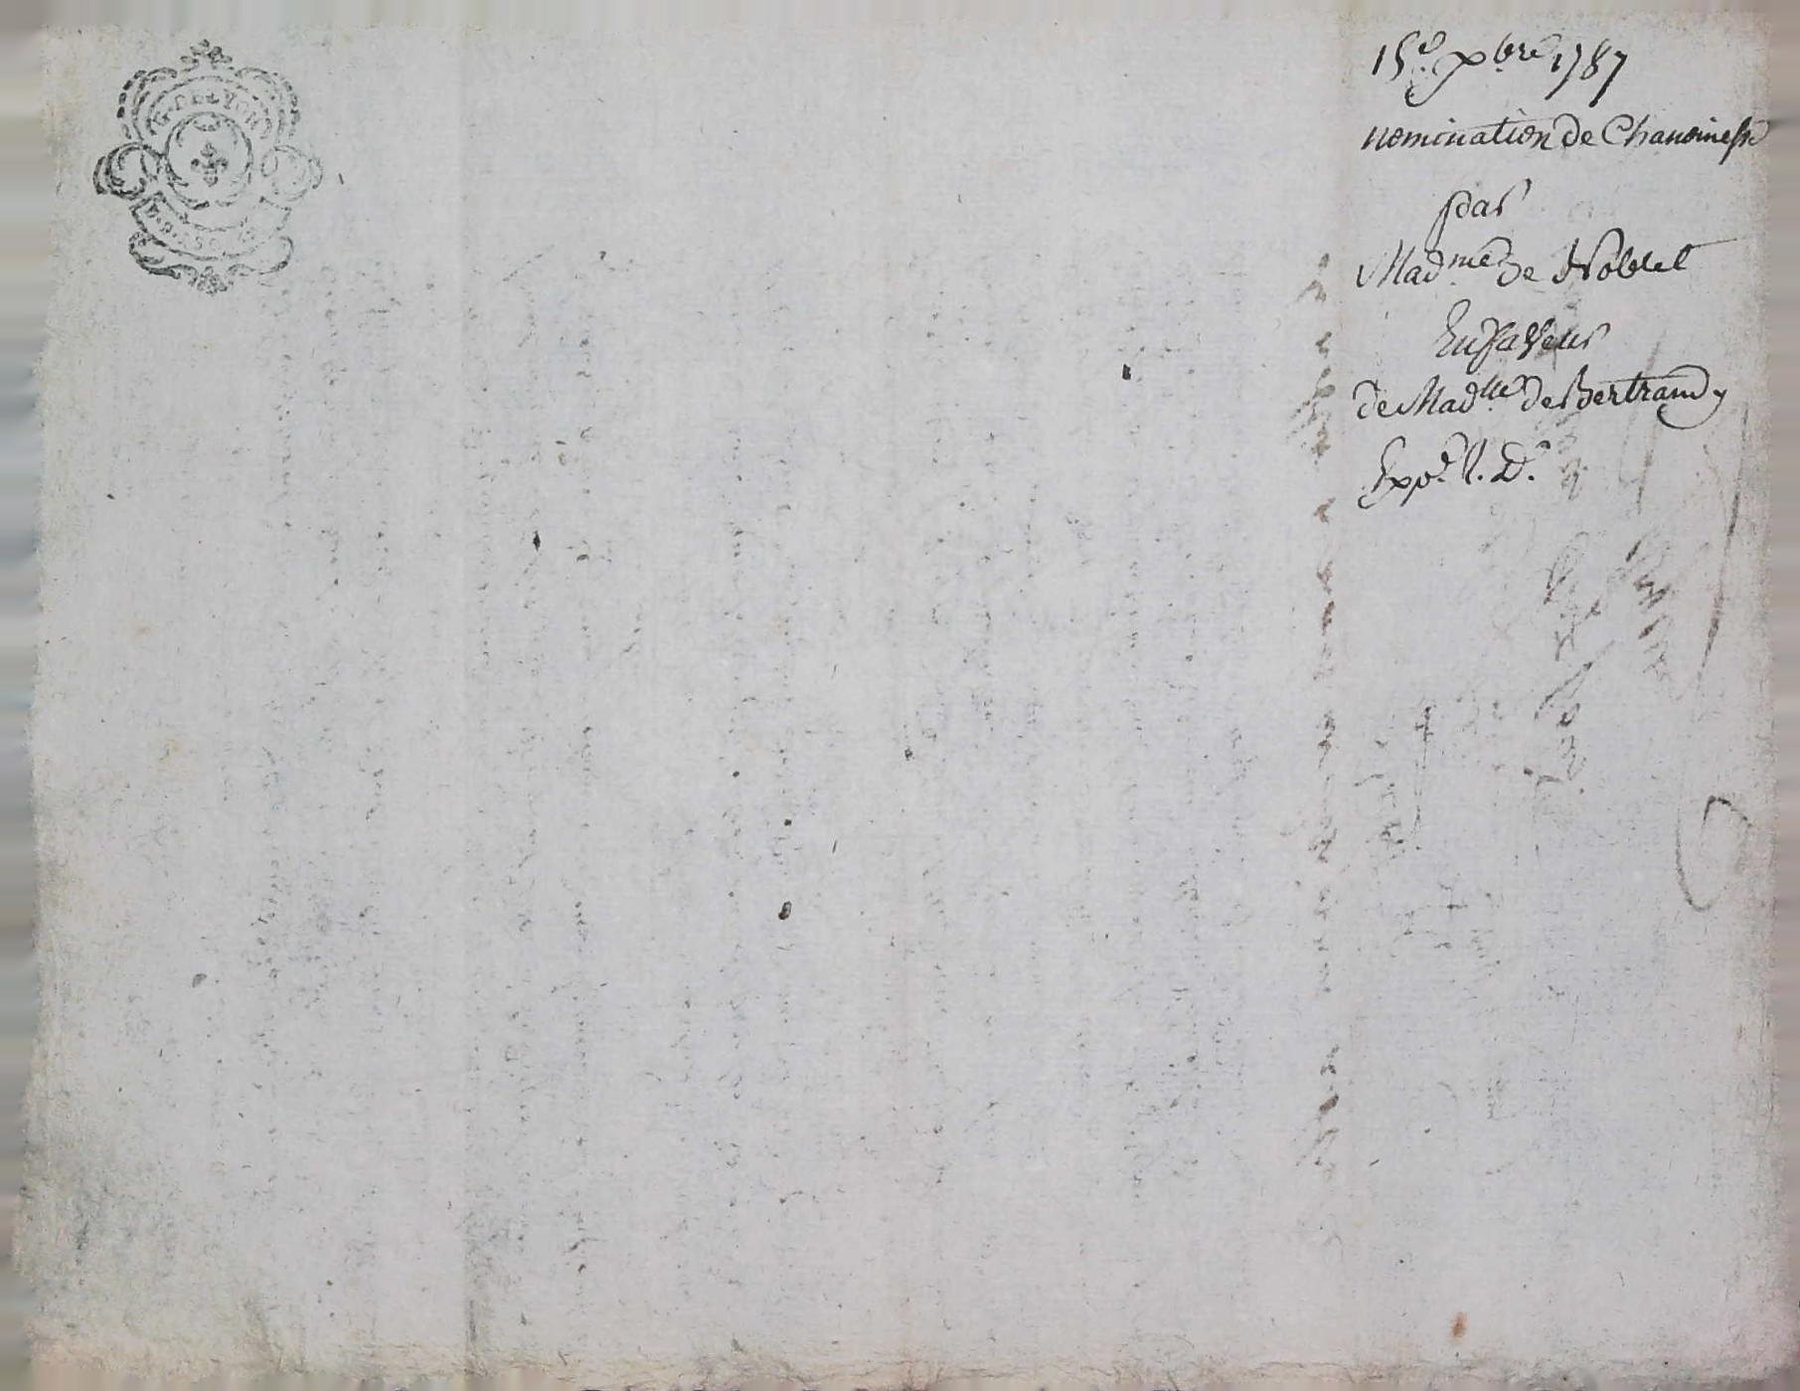 15e xbre 1787
nomination de Chanoinesse
par
Madme de Noblet
En faveur
de Madlle de Bertrand
Expe.
G. DE LYON